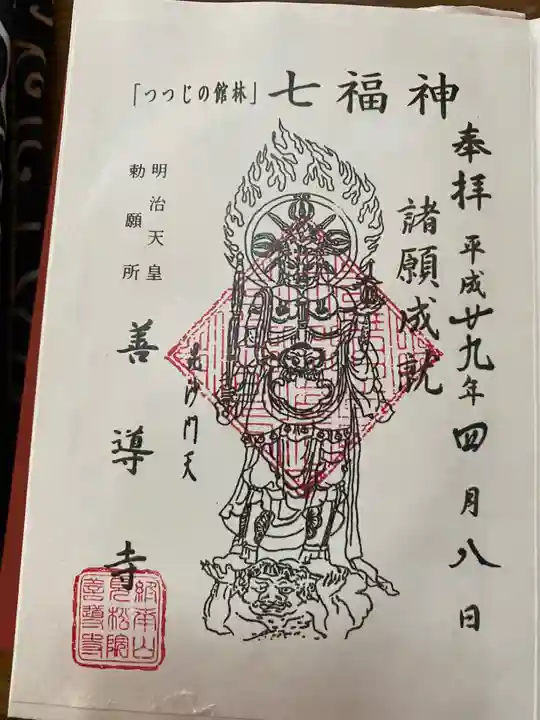 「つつじの館林」七福神
奉拝 平成廿九年四月八日
諸願成就
毘沙門天
明治天皇
勅願所
善導寺
終南山
見松院
善導寺